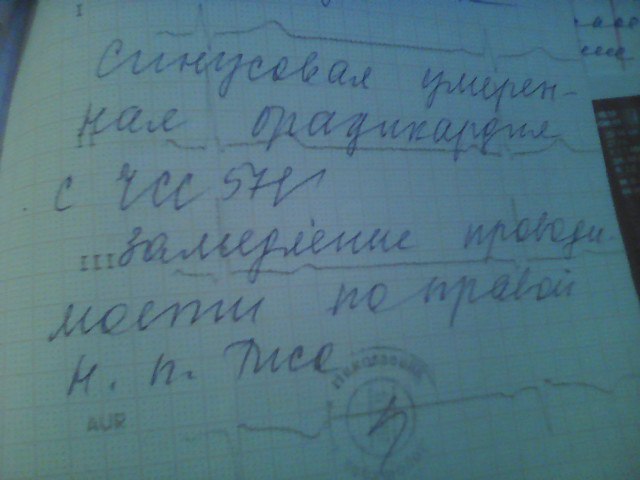 I
синусовая умерен-
ная брадикардия
с ЧСС 57
III
Замедление проводи-
мости по правой
н. п. Гиса
AUR